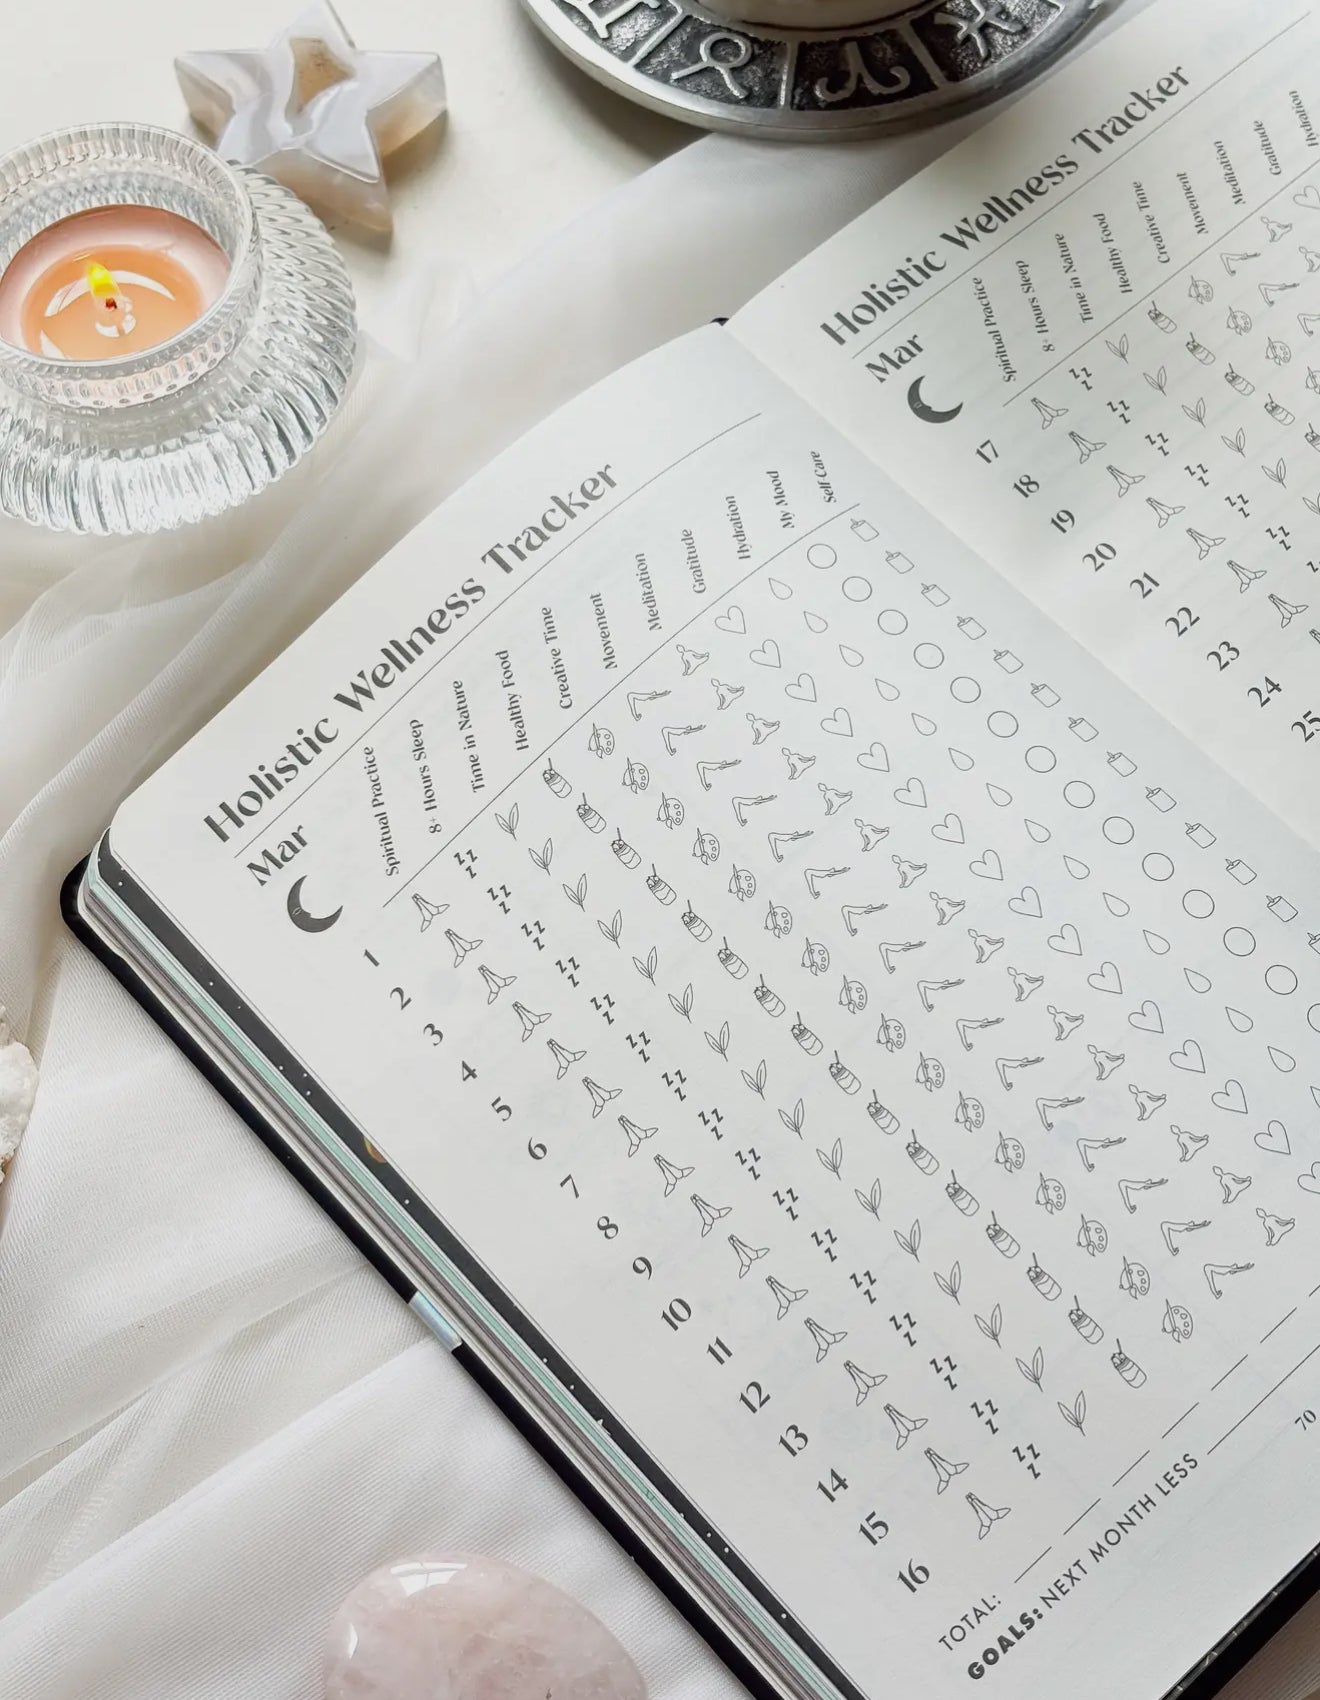 Holistic Wellness Tracker
Mar
Spiritual Practice
8+ Hours Sleep
Time in Nature
Healthy Food
Creative Time
Movement
Meditation
Gratitude
Hydration
My Mood
Self Care
1
2
3
4
5
6
7
8
9
10
11
12
13
14
15
16
TOTAL:
GOALS: NEXT MONTH LESS
70
Holistic Wellness Tracker
Mar
Spiritual Practice
8+ Hours Sleep
Time in Nature
Healthy Food
Creative Time
Movement
Meditation
Gratitude
Hydration
17
18
19
20
21
22
23
24
25